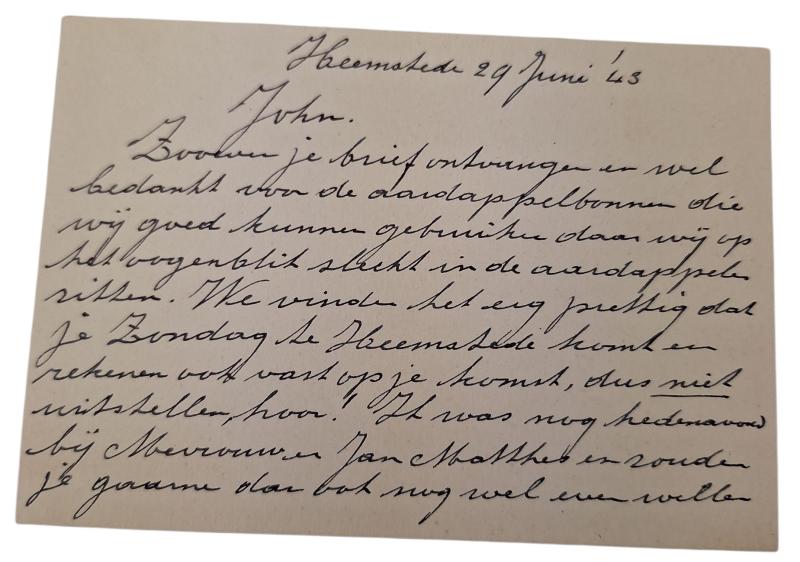 Heemstede 29 Juni '43
John.
Zooeven je brief ontvangen en wel
bedankt voor de aardappelbonnen die
wij goed kunnen gebruiken daar wij op
het oogenblik slecht in de aardappelen
zitten. We vinden het erg prettig dat
je Zondag te Heemstede komt en
rekenen ook vast op je komst, dus niet
uitstellen, hoor! Ik was nog hedenavond
bij Mevrouw en Jan Matthes en zouden
je gaarne daar ook nog wel even willen